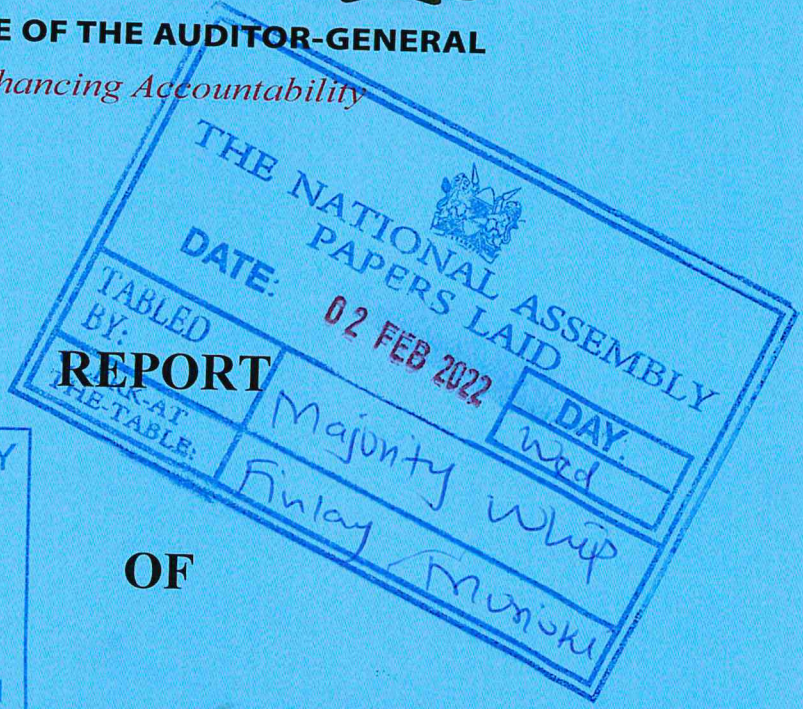 E OF THE AUDITOR-GENERAL
hancing Accountability
THE NATIONAL ASSEMBLY
PAPERS LAID
DATE: 02 FEB 2022
DAY.
Wed
TABLED
BY:
Majority Whip
REPORT
CLERK-AT
THE-TABLE:
Finlay
OF
Y